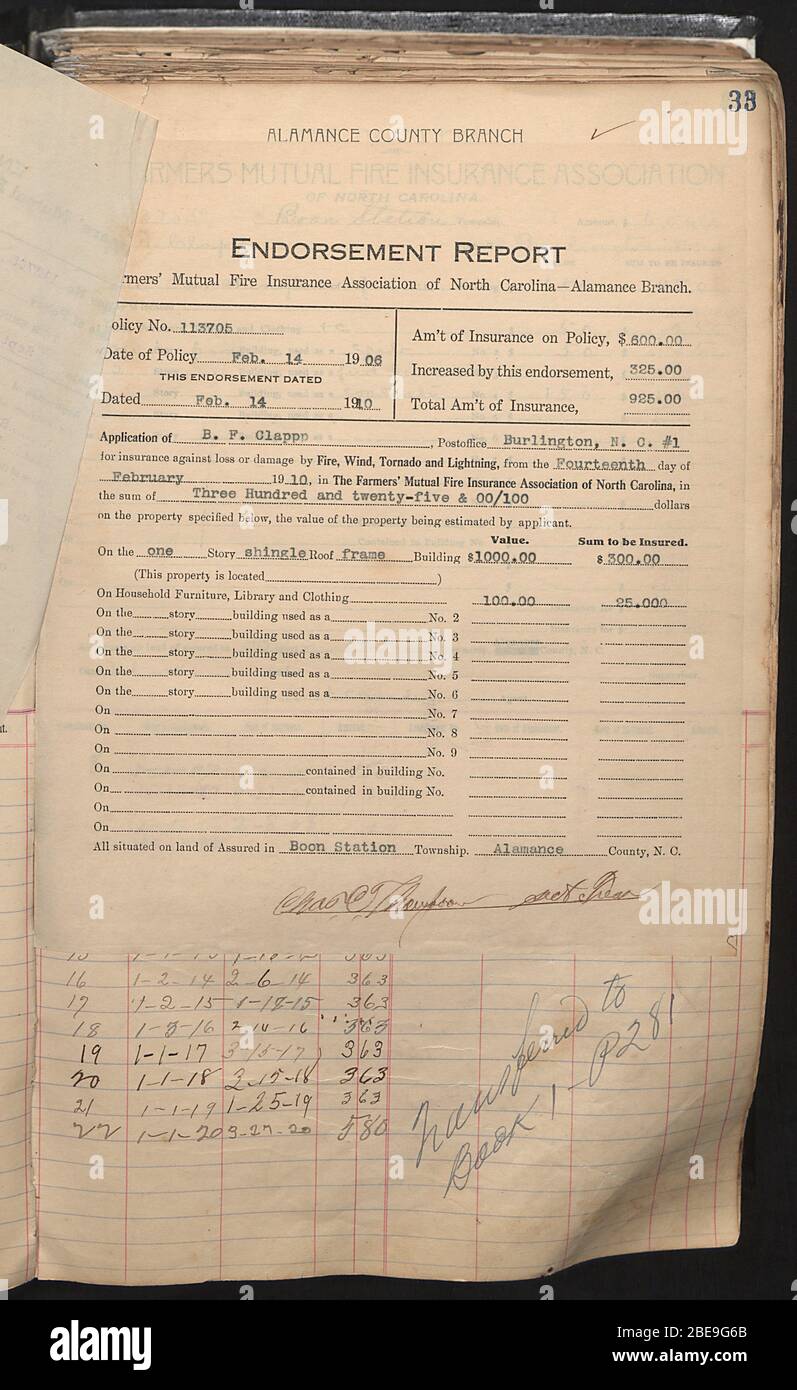 38
ALAMANCE COUNTY BRANCH
FARMERS MUTUAL FIRE INSURANCE ASSOCIATION
OF NORTH CAROLINA
Boon Station
ENDORSEMENT REPORT
rmers' Mutual Fire Insurance Association of North Carolina—Alamance Branch.
olicy No. 113705
Date of Policy Feb. 14 1906
THIS ENDORSEMENT DATED
Dated Feb. 14 1910
Am't of Insurance on Policy, $600.00
Increased by this endorsement, 325.00
Total Am't of Insurance, 925.00
Application of B. F. Clappp, Postoffice Burlington, N. C. #1
for insurance against loss or damage by Fire, Wind, Tornado and Lightning, from the Fourteenth day of
February 1910, in The Farmers' Mutual Fire Insurance Association of North Carolina, in
the sum of Three Hundred and twenty-five & 00/100 dollars
on the property specified below, the value of the property being estimated by applicant.
Value. Sum to be Insured.
On the one Story shingle Roof frame Building $1000.00 $300.00
(This property is located )
On Household Furniture, Library and Clothing 100.00 25.000
On the story building used as a No. 2
On the story building used as a No. 3
On the story building used as a No. 4
On the story building used as a No. 5
On the story building used as a No. 6
On No. 7
On No. 8
On No. 9
On contained in building No.
On contained in building No.
On
On
All situated on land of Assured in Boon Station Township. Alamance County, N. C.
Chas C Thompson sect Treas
16 1-2-14 2-6-14 363
17 1-2-15 1-18-15 363
18 1-3-16 2-10-16 363
19 1-1-17 3-15-17 363
20 1-1-18 3-15-18 363
21 1-1-19 1-25-19 363
22 1-1-20 3-27-20 580
Transferred to
Book 1-P281
alamy
Image ID: 2BE9G6B
www.alamy.com